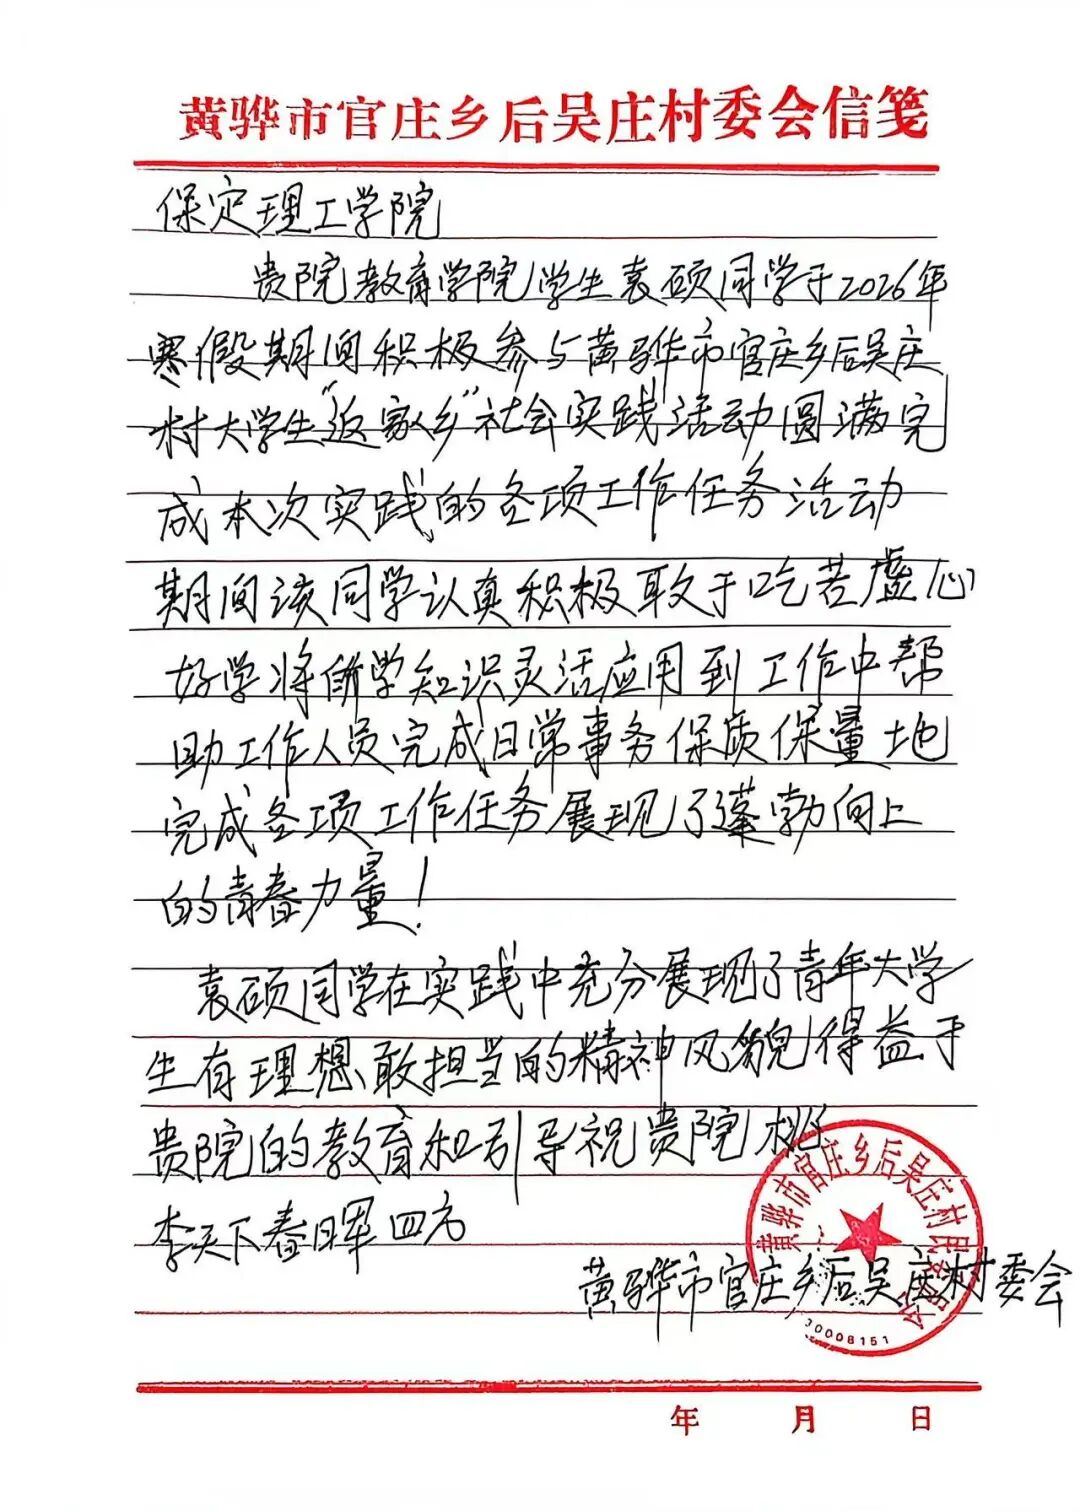 黄骅市官庄乡后吴庄村委会信笺
保定理工学院
贵院教育学院学生袁硕同学于2026年
寒假期间积极参与黄骅市官庄乡后吴庄
村大学生"返家乡"社会实践活动圆满完
成本次实践的各项工作任务活动
期间该同学认真积极敢于吃苦虚心
好学将所学知识灵活应用到工作中帮
助工作人员完成日常事务保质保量地
完成各项工作任务展现了蓬勃向上
的青春力量！
袁硕同学在实践中充分展现了青年大学
生有理想敢担当的精神风貌得益于
贵院的教育和引导祝贵院桃
李天下春晖四方
黄骅市官庄乡后吴庄村民委员会
黄骅市官庄乡后吴庄村委会
30008151
年 月 日